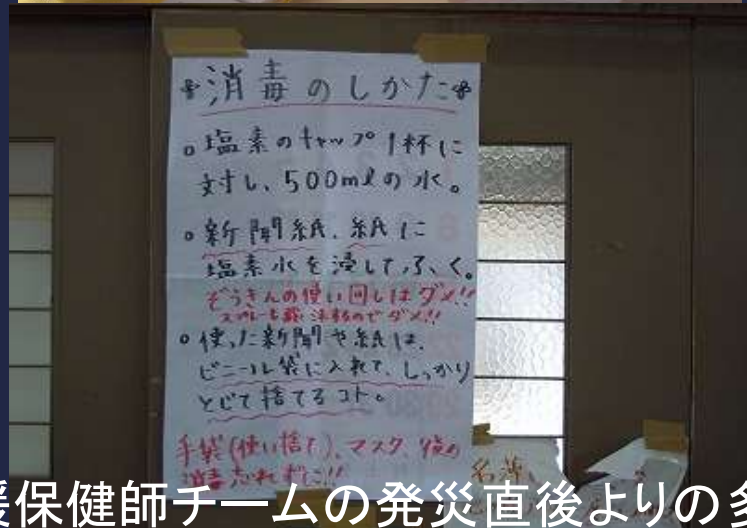 消毒のしかた
○塩素のキャップ1杯に
対し、500mlの水。
○新聞紙、紙に
塩素水を浸して、ふく。
ぞうきんの使い回しはダメ!!
スプレーも ダメ!!
○使った新聞や紙は、
ビニール袋に入れて、しっかり
とじて捨てるコト。
手袋(使い捨て)、マスク、後の
消毒忘れずに!!
名簿
援保健師チームの発災直後よりの多